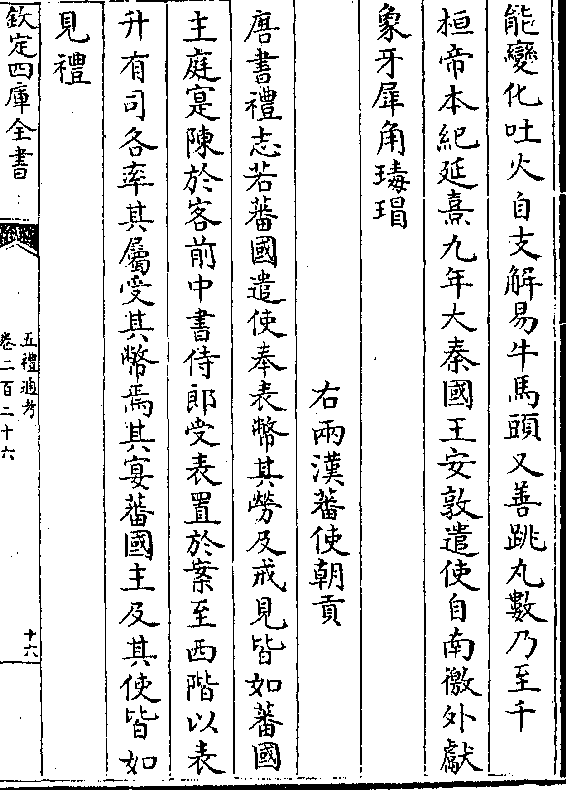 能變化吐火自支解易牛馬頭又善跳丸數乃至千
桓帝本紀延熹九年大秦國王安敦遣使自南徼外獻
象牙犀角瑇瑁
右兩漢蕃使朝貢
唐書禮志若蕃國遣使奉表幣其勞及戒見皆如蕃國
主庭寔陳於客前中書侍郎受表置於案至西階以表
升有司各率其屬受其幣焉其宴蕃國主及其使皆如
見禮
欽定四庫全書
五禮通考
卷二百二十六
十六